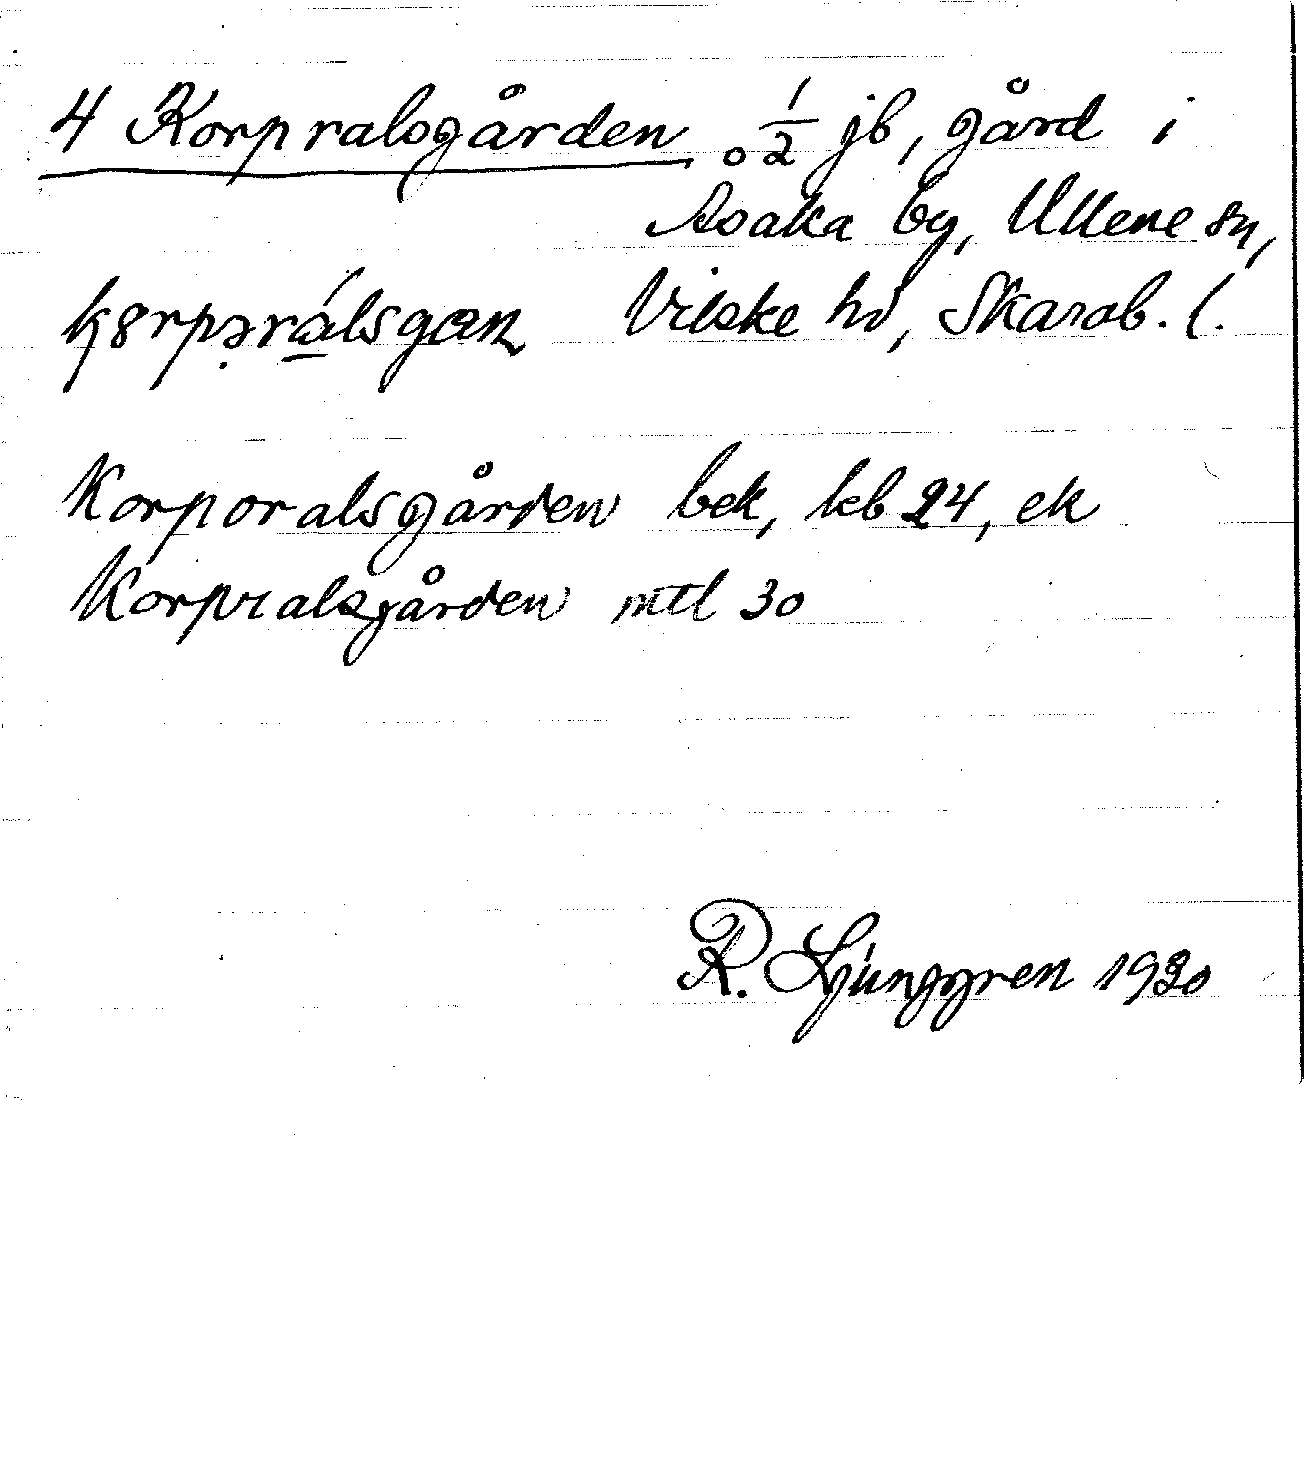 4 Korpralsgården o 1/2 jb, gård i
Asaka by, Ullene sn,
Vilske hd, Skarab. l.
Korporalsgården bek, kb 24, ek
Korpralsgården mtl 30
R. Ljunggren 1930